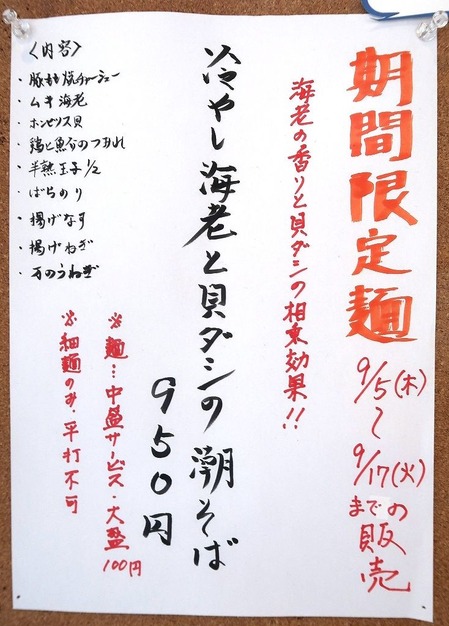 期間限定麺
9/5(木)
〜
9/17(火)
までの
販売
海老の香りと貝ダシの相乗効果!!
冷やし海老と貝ダシの潮そば
950円
※麺…中盛サービス・大盛100円
※細麺のみ・平打不可
〈内容〉
・豚吊るし焼チャーシュー
・ムキ海老
・ホンビノス貝
・鶏と魚介のつみれ
・半熟玉子1/2
・ばらのり
・揚げなす
・揚げねぎ
・万のうねぎ